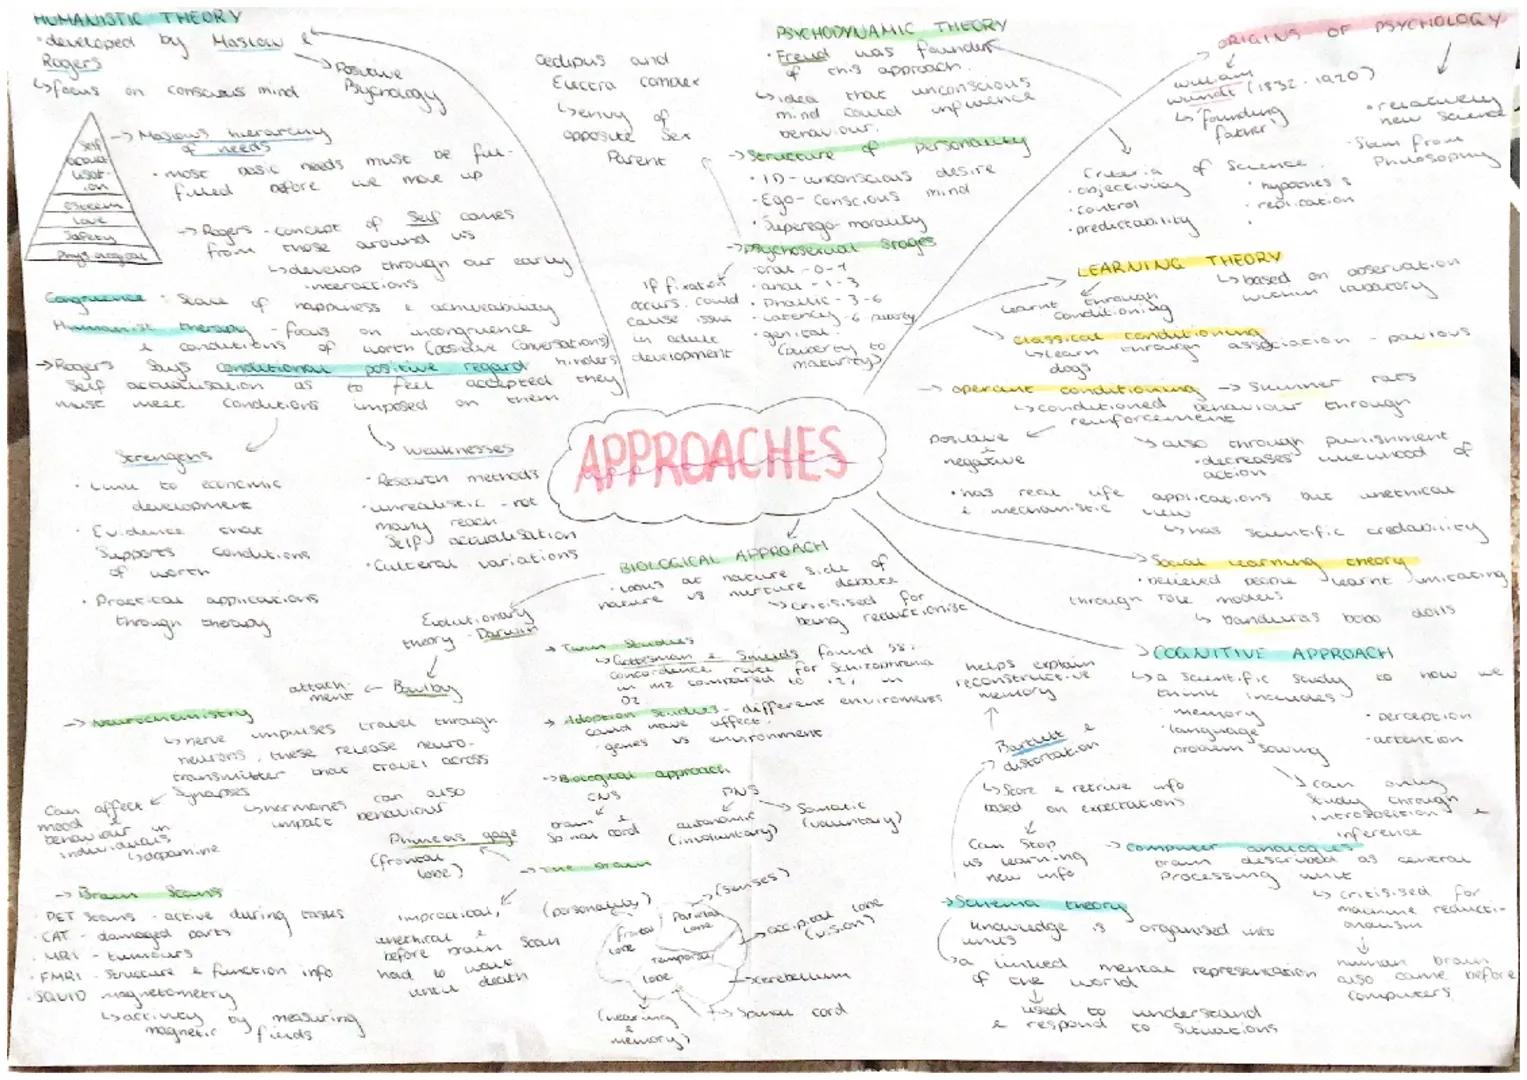 HUMANISTIC THEORY
• developed by Maslow &
Rogers
↳ focus on conscious mind
→ Positive
Psychology
→ Maslow's hierarchy
of needs
• most basic needs must be ful-
filled before we move up
Self
actual-
isat-
ion
Esteem
Love
Safety
Physiological
→ Rogers - concept of self comes
from those around us
↳ develop through our early
interactions
Congruence : State of happiness & achievability
Humanist therapy - focus on incongruence
& conditions of worth (positive conversations)
→ Rogers says conditional positive regard hinders
self actualisation as to feel accepted they
must meet conditions imposed on them
Strengths
• Link to economic
development
• Evidence that
supports conditions
of worth
• Practical applications
through therapy
Weaknesses
• Research methods
• unrealistic - not
many reach
self actualisation
• Cultural variations
Oedipus and
Electra complex
↳ envy of
opposite sex
parent
PSYCHODYNAMIC THEORY
• Freud was founder
of this approach.
↳ idea that unconscious
mind could influence
behaviour.
→ Structure of personality
• ID - unconscious desire
• Ego - conscious mind
• Superego - morality
→ Psychosexual stages
• oral - 0-1
• anal - 1-3
• Phallic - 3-6
• Latency - 6 - puberty
• genital -
(puberty to
maturity)
If fixation
occurs could
cause issue
in adult
development
ORIGINS OF PSYCHOLOGY
William
Wundt (1832-1920)
↳ founding
father
• relatively
new science
• Stem from
Philosophy
Criteria of Science.
• objectivity
• control
• predictability
• hypothesis
• replication
•
LEARNING THEORY
↳ based on observation
within labatory
learnt through
conditioning
↘ classical conditioning
↳ learn through association - pavlovs
dogs
→ operant conditioning → Skinner rats
↳ conditioned behaviour through
reinforcement
positive
&
negative
↘ also through punishment
• decreases likelihood of
action
• has real life applications but unethical
& mechanistic view
↳ has scientific credability
→ Social learning theory
• believed people learnt imitating
through role models
↳ banduras bobo dolls
APPROACHES
BIOLOGICAL APPROACH
• looks at nature side of
nature vs nurture debate
↳ critisised for
being reductionist
Evolutionary
theory - Darwin
attach-
ment ← Bowlby
→ Twin Studies
↳ Gottesman & Shields found 58%
concordance rate for schizophrenia
in MZ compared to 12% in
DZ
→ Adoption studies - different enviroments
could have affect.
• genes vs environment
→ Neurochemistry
↳ nerve impulses travel through
neurons, these release neuro-
transmitter that travel across
synapses
Can affect
mood &
behaviour in
individuals
↳ dopamine
↳ hormones can also
impact behaviour
→ Biological approach
CNS
brain &
Spinal cord
PNS
autonomic
(involuntary)
→ Somatic
(voluntary)
Phineas gage
(frontal
lobe)
→ The brain
impractical,
unethical &
before brain scan
had to wait
until death
(personality)
frontal
lobe
Parietal
lobe
(senses)
occipital lobe
(vision)
Temporal
lobe
cerebellum
Spinal cord
(hearing
&
memory)
→ Brain Scans
• PET Scans - active during tasks
• CAT - damaged parts
• MRI - tumours
• FMRI - structure & function info
• SQUID magnetometry
↳ activity by measuring
magnetic fields
→ COGNITIVE APPROACH
↳ a scientific study to how we
think includes:
• memory
• language
• problem solving
• perception
• attention
↘ can only
study through
introspection &
inference
helps explain
reconstructive
memory
Bartlett &
distortation
↳ Store & retrive info
based on expectations
Can stop
us learning
new info
→ computer analogies
brain described as central
processing unit
↳ critisised for
machine reducti-
onanism
human brain
also came before
computers
→ Schema theory
knowledge is organised into
units
↳ a linked mental representation
of the world
used to understand
& respond to situations